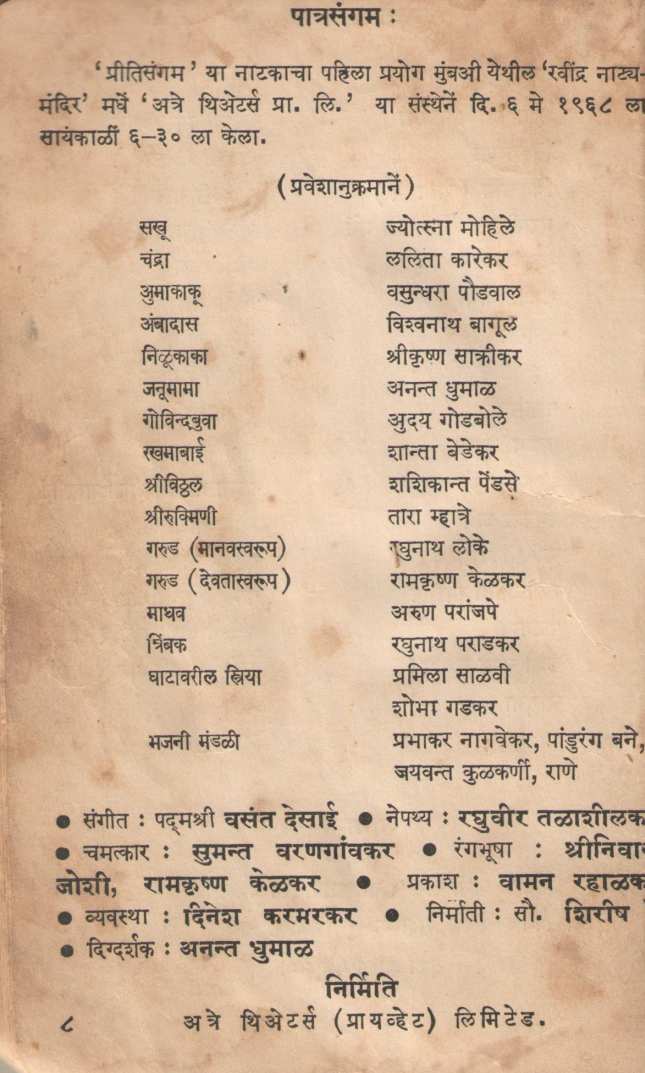 पात्रसंगम :
‘प्रीतिसंगम’ या नाटकाचा पहिला प्रयोग मुंबअी येथील ‘रवींद्र नाट्य-
मंदिर’ मधें ‘अत्रे थिअेटर्स प्रा. लि.’ या संस्थेनें दि. ६ मे १९६८ ला
सायंकाळीं ६–३० ला केला.
(प्रवेशानुक्रमानें)
सखू ज्योत्स्ना मोहिले
चंद्रा ललिता कारेकर
अुमाकाकू वसुन्धरा पौडवाल
अंबादास विश्वनाथ बागूल
निळूकाका श्रीकृष्ण साक्रीकर
जनूमामा अनन्त धुमाळ
गोविन्दबुवा अुदय गोडबोले
रखमाबाई शान्ता बेडेकर
श्रीविठ्ठल शशिकान्त पेंडसे
श्रीरुक्मिणी तारा म्हात्रे
गरुड (मानवस्वरूप) रघुनाथ लोके
गरुड (देवतास्वरूप) रामकृष्ण केळकर
माधव अरुण परांजपे
त्रिंबक रघुनाथ पराडकर
घाटावरील स्त्रिया प्रमिला साळवी
शोभा गडकर
भजनी मंडळी प्रभाकर नागवेकर, पांडुरंग बने,
जयवन्त कुळकर्णी, राणे
● संगीत : पद्मश्री वसंत देसाई ● नेपथ्य : रघुवीर तळाशीलक
● चमत्कार : सुमन्त वरणगांवकर ● रंगभूषा : श्रीनिवा
जोशी, रामकृष्ण केळकर ● प्रकाश : वामन रहाळक
● व्यवस्था : दिनेश करमरकर ● निर्माती : सौ. शिरीष
● दिग्दर्शक : अनन्त धुमाळ
निर्मिति
८ अत्रे थिअेटर्स (प्रायव्हेट) लिमिटेड.